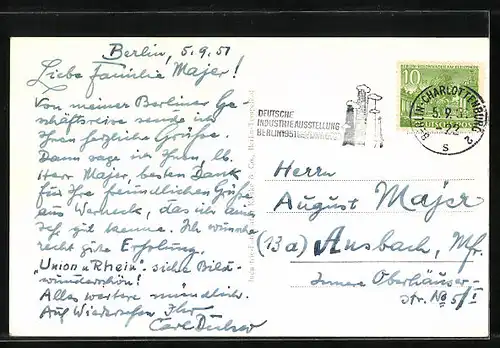 Berlin, 5.9.51
Liebe Familie Majer!
Von meiner Berliner Ge-
schäftsreise sende ich
Ihnen herzliche Grüße.
Dann sage ich Ihnen, lb.
Herr Majer, besten Dank
für Ihre freundlichen Grüße
aus Werneck, das ich auch
sehr gut kenne. Ich wünsche
recht gute Erholung.
"Union u Rhein" siehe Bild
wunderschön!
Alles weitere mündlich.
Auf Wiedersehen Ihr
Carl
DEUTSCHE
INDUSTRIE AUSSTELLUNG
BERLIN 1951
10
BERLIN-CHARLOTTENBURG 2
5.9.51
-22
s
Herrn
August Majer
(13a) Ansbach, Mfr.
Innere Oberhäuser-
str. No 5/I